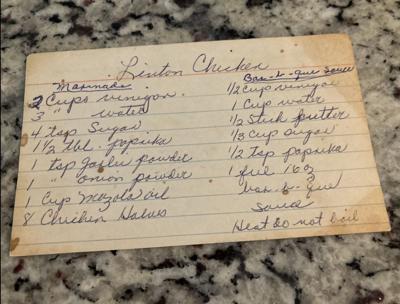 Linton Chicken
Marinade
2 Cups vinegar
3 " water
4 tsp Sugar
1 1/2 tbl. paprika
1 tsp garlic powder
1 " onion powder
1 Cup Mazola oil
8 Chicken Halves
Bar-b-que Sauce
1/2 Cup vinegar
1 Cup water
1/2 Stick butter
1/3 Cup sugar
1/2 tsp paprika
1 16 oz
bar-b-que
Sauce
Heat do not boil